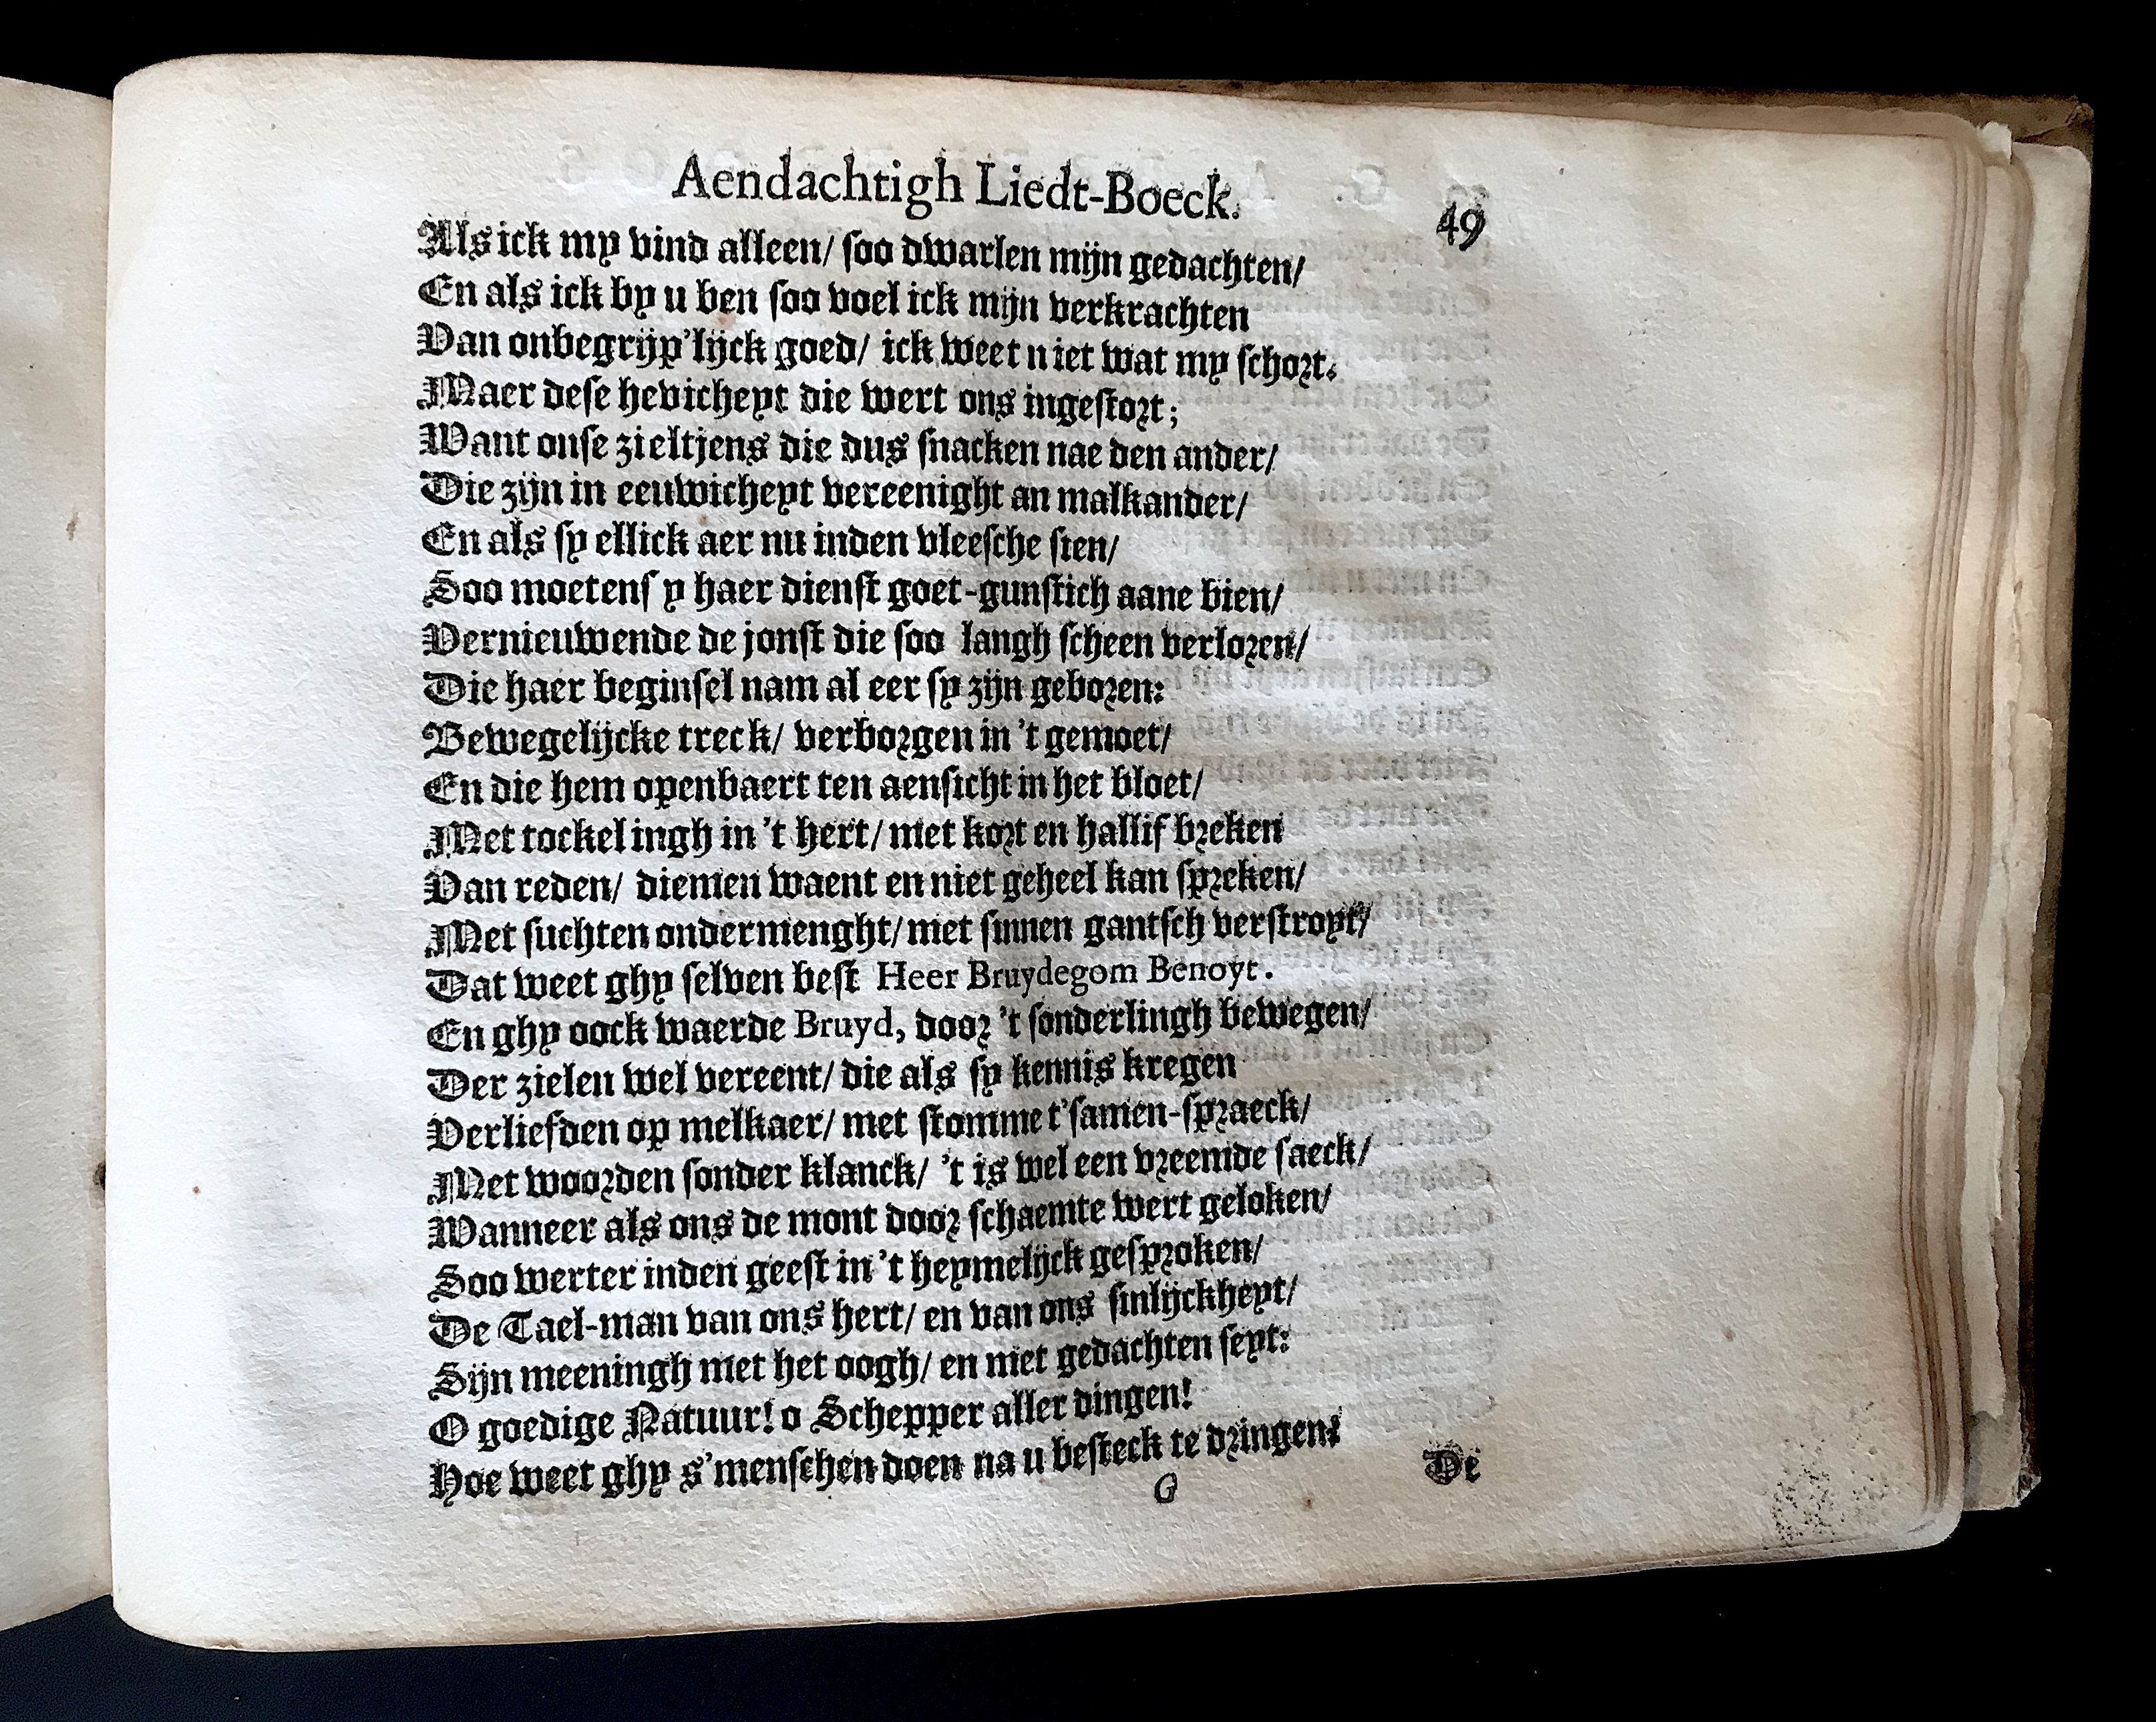 Aendachtigh Liedt-Boeck.
49
Als ick my vind alleen/ soo dwarlen mijn gedachten/
En als ick by u ben soo voel ick mijn verkrachten
Van onbegrijp'lijck goed/ ick weet niet wat my schort.
Maer dese hevicheyt die wert ons ingestort;
Want onse zieltjens die dus snacken nae den ander/
Die zijn in eeuwicheyt vereenight an malkander/
En als sy ellick aer nu inden vleesche sien/
Soo moetens y haer dienst goet-gunstich aane bien/
Vernieuwende de jonst die soo langh scheen verloren/
Die haer beginsel nam al eer sy zijn geboren:
Bewegelijcke treck/ verborgen in 't gemoet/
En die hem openbaert ten aensicht in het bloet/
Met tockelingh in 't hert/ met kort en hallif breken
Van reden/ diemen waent en niet geheel kan spreken/
Met suchten ondermenght/ met sinnen gantsch verstroyt/
Dat weet ghy selven best Heer Bruydegom Benoyt.
En ghy oock waerde Bruyd, door 't sonderlingh bewegen/
Der zielen wel vereent/ die als sy kennis kregen
Verliefden op melkaer/ met stomme t'samen-spraeck/
Met woorden sonder klanck/ 't is wel een vreemde saeck/
Wanneer als ons de mont door schaemte wert geloken/
Soo werter inden geest in 't heymelijck gesproken/
De Tael-man van ons hert/ en van ons sinlijckheyt/
Sijn meeningh met het oogh/ en met gedachten seyt:
O goedige Natuur! o Schepper aller dingen!
Hoe weet ghy s'menschen doen na u besteck te dringen!
G
De